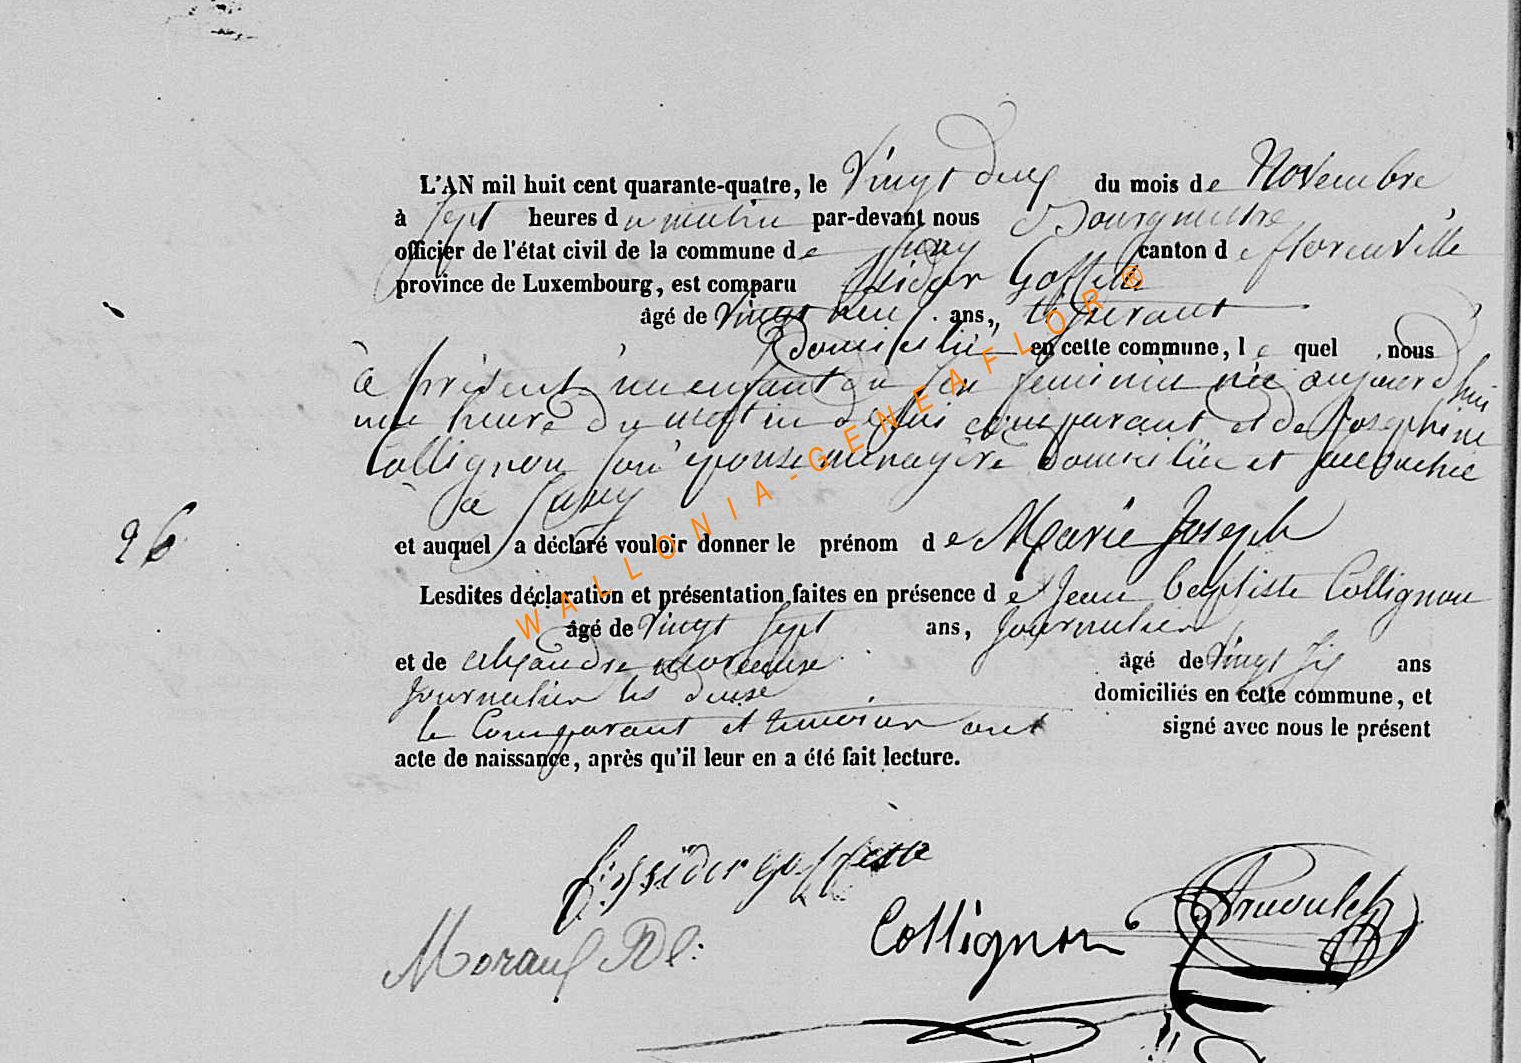 L'AN mil huit cent quarante-quatre, le Vingt deux du mois de Novembre
à Sept heures du matin par-devant nous Bourgmestre
officier de l'état civil de la commune de canton de florenville
province de Luxembourg, est comparu Goffette
âgé de Vingt ans, tisserant
domicilié en cette commune, le quel nous
a présenté un enfant du sex feminin née aujourd'hui
une heure du matin de lui comparant et de Josephine
Collignon son épouse ménagère domiciliée et accouchée
a
26
et auquel a déclaré vouloir donner le prénom de Marie Joseph
Lesdites déclaration et présentation faites en présence de Jean Baptiste Collignon
âgé de Vingt Sept ans, Journalier
et de alexandre âgé de Vingt Six ans
Journalier les deux domiciliés en cette commune, et
le Comparant et temoins ont signé avec nous le présent
acte de naissance, après qu'il leur en a été fait lecture.
goffette
Collignon
WALLONIA-GENEAFLOR®